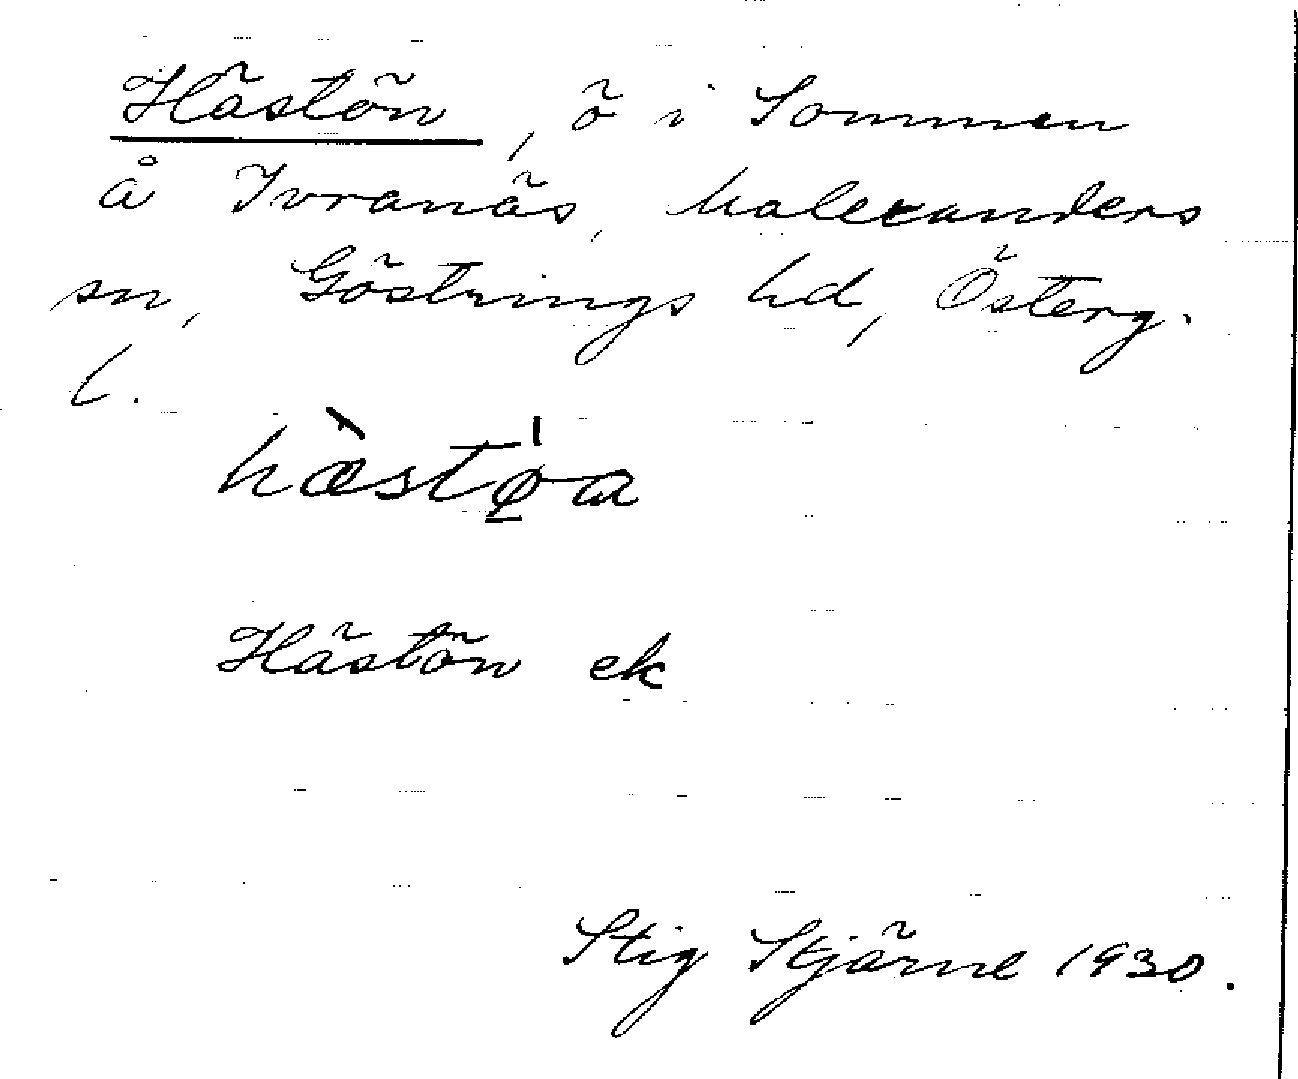 Hästön, ö i Sommen
å Ivranäs, Malexanders
sn, Göstrings hd, Österg.
l.
hæ̀stø̠̍a
Hästön ek
Stig Stjärne 1930.